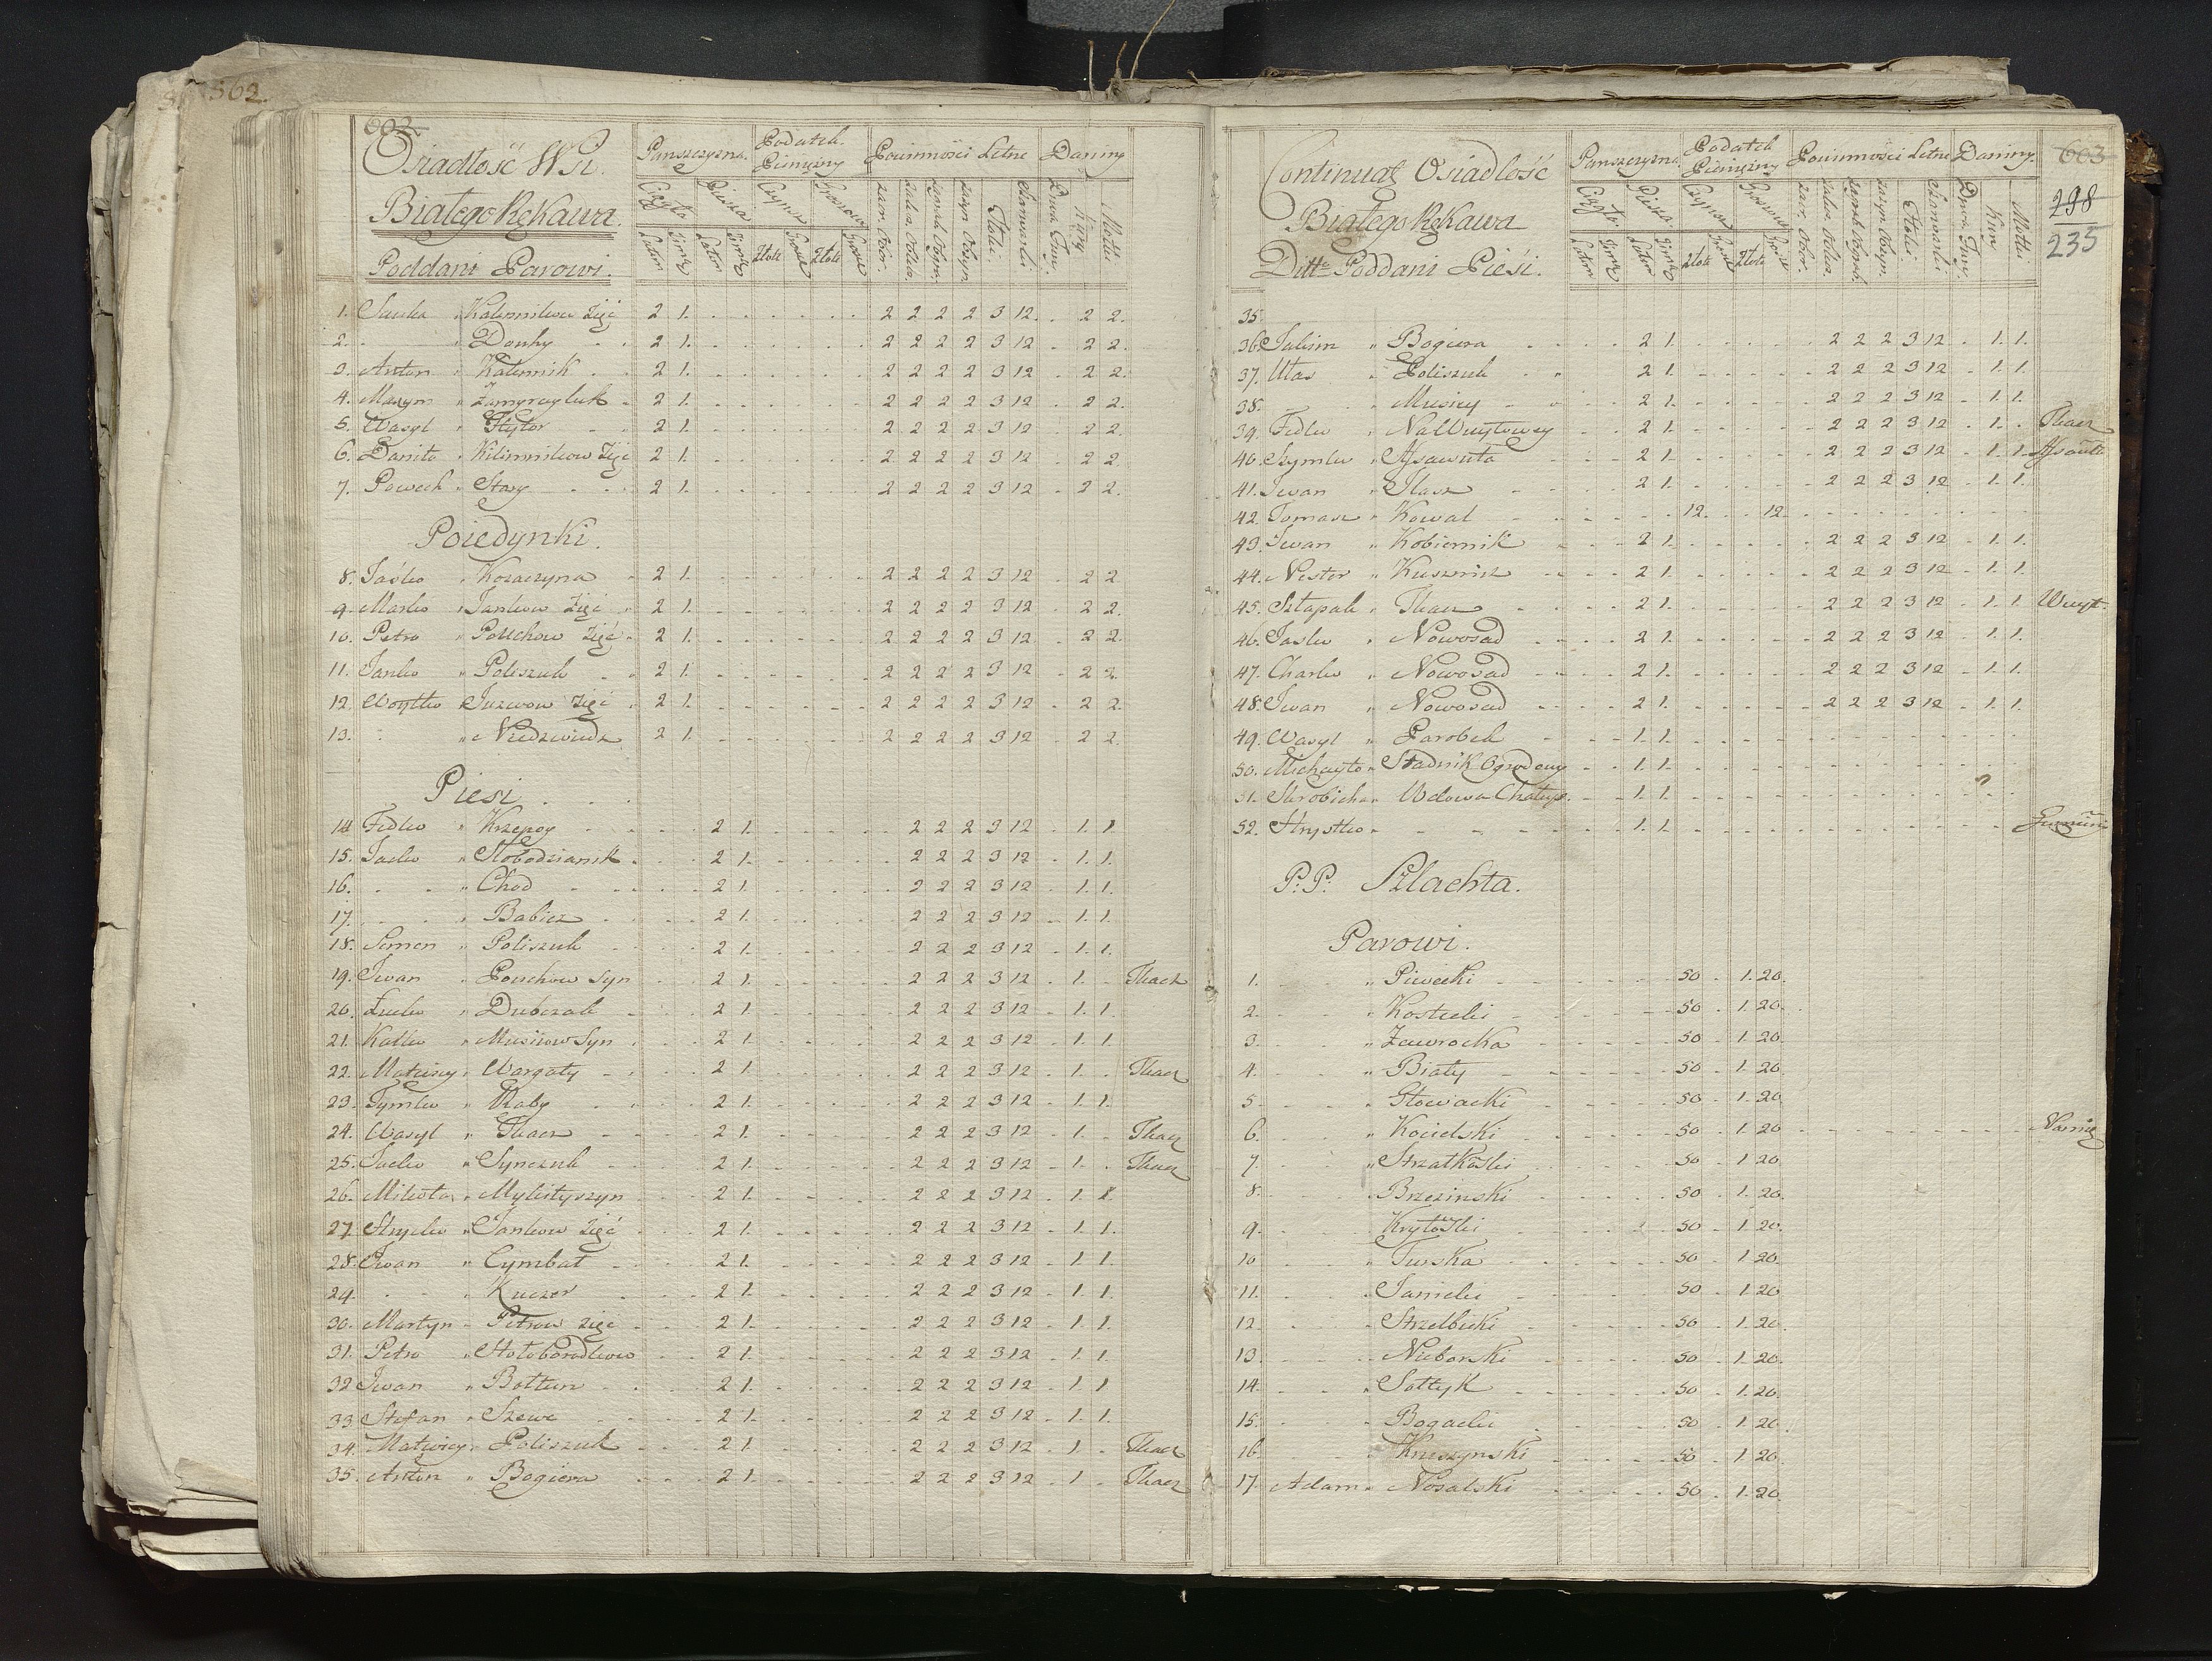 562.
602
Osiadłość Wsi.
Białego Rękawa.
Poddani Parowi.
Panszczyzna. Podatek Pieniężny Powinności Letne Daniny
Ciągła Piesza Czynsz
Latem Zimą Latem Zimą Złote Grosze Złote Grosze
1. Kalennikow Zięć 2 1. 2 2 2 2 3 12. 2 2.
2. Donhy 2 1. 2 2 2 2 3 12 2 2.
3. Anton Kalennik 2 1. 2 2 2 2 3 12 2 2.
4. Maxym 2 1. 2 2 2 2 3 12 2 2.
5. Wasyl 2 1. 2 2 2 2 3 12 2 2.
6. Daniło Kilimnikow Zięć 2 1. 2 2 2 2 3 12 2 2.
7. Stary 2 1. 2 2 2 2 3 12 2 2.
Poiedynki.
8. Jaśko Kozaczyna 2 1. 2 2 2 2 3 12 2 2.
9. Marko Jankow Zięć 2 1. 2 2 2 2 3 12 2 2.
10. Petro Zięć 2 1. 2 2 2 2 3 12 2 2.
11. Janko Poliszuk 2 1. 2 2 2 2 3 12 2 2.
12. Woytko Zięć 2 1. 2 2 2 2 3 12 2 2.
13. Niedzwiedz 2 1. 2 2 2 2 3 12 2 2.
Piesi
14 Fedko 2 1. 2 2 2 3 12 1. 1
15. Jacko Słobodzianik 2 1. 2 2 2 3 12 1. 1.
16. Chod 2 1. 2 2 2 3 12 1. 1.
17. Babicz 2 1. 2 2 2 3 12 1. 1.
18. Semen Poliszuk 2 1. 2 2 2 3 12 1. 1.
19. Iwan Syn 2 1. 2 2 2 3 12 1. Tkacz
20. Łucko Dubczak 2 1. 2 2 2 3 12 1. 1.
21. Musiiow Syn 2 1. 2 2 2 3 12 1. 1.
22. Matwiey Wargaty 2 1. 2 2 2 3 12 1. Tkacz
23. Tymko Raby 2 1. 2 2 2 3 12 1. 1.
24. Wasyl Tkacz 2 1. 2 2 2 3 12 1. Tkacz
25. Jacko Synczuk 2 1. 2 2 2 3 12 1. Tkacz
26. Mikoła Mykityszyn 2 1. 2 2 2 3 12 1. 1.
27. Hrycko Jankow Zięć 2 1. 2 2 2 3 12 1. 1.
28. Iwan Cymbał 2 1. 2 2 2 3 12 1. 1
29. Kuczer 2 1. 2 2 2 3 12 1. 1.
30. Martyn Petrow Zięć 2 1. 2 2 2 3 12 1. 1.
31. Petro Hołoborodkow 2 1. 2 2 2 3 12 1. 1.
32 Iwan Bołtun 2 1. 2 2 2 3 12 1. 1
33 Stefan Szewc 2 1. 2 2 2 3 12 1. 1.
34. Matwiey Poliszuk 2 1. 2 2 2 3 12 1 Tkacz
35. Anton Bogiera 2 1. 2 2 2 3 12 1 Tkacz
603
298
235
Continuat Osiadłość
Białego Rękawa
Ditto Poddani Pieśi.
Panszczyzna. Podatek Pieniężny Powinności Letne Daniny.
Ciągła Piesza Czynsz
Latem Zimą Latem Zimą Złote Grosze Złote Grosze
35.
36. Bogiera 2 1. 2 2 2 3 12 1. 1.
37. Poliszuk 2 1. 2 2 2 3 12 1. 1.
38. Musiey 2 1. 2 2 2 3 12 1. 1.
39. Fedko 2 1. 2 2 2 3 12 1. Tkacz
40. Assawuła 2 1. 2 2 2 3 12 1. 1.
41. Iwan 2 1. 2 2 2 3 12 1. 1.
42. Tomasz Kowal 12. 12
43. Iwan Kobiernik 2 1. 2 2 2 3 12 1. 1.
44. Nester Kusznirz 2 1. 2 2 2 3 12 1. 1.
45. Tkacz 2 1. 2 2 2 3 12 1. 1. Wuyt.
46. Jasko Nowosad 2 1. 2 2 2 3 12 1. 1.
47. Charko Nowosad 2 1. 2 2 2 3 12 1. 1.
48. Iwan Nowosad 2 1. 2 2 2 3 12 1. 1.
49. Wasyl Parobek 1. 1.
50. Michayło Stadnik 1. 1.
51. Wdowa 1. 1.
52. 1. 1.
P: P: Szlachta.
Parowi.
1. Piwecki 50 1. 20.
2. Kostecki 50 1. 20.
3. Zawrocka 50 1. 20.
4. Biały 50 1. 20.
5. Głowacki 50 1. 20.
6. Kocielski 50 1. 20
7. 50 1 20.
8. Brzezinski 50 1. 20.
9. 50 1. 20.
10 Turska 50 1 20.
11. Janicki 50 1. 20
12. Strzelbicki 50 1. 20.
13. Nieborski 50 1. 20.
14. Sołtyk 50 1. 20.
15. Bogacki 50 1. 20.
16. Kruszynski 50 1. 20.
17. Adam Nosalski 50 1. 20.